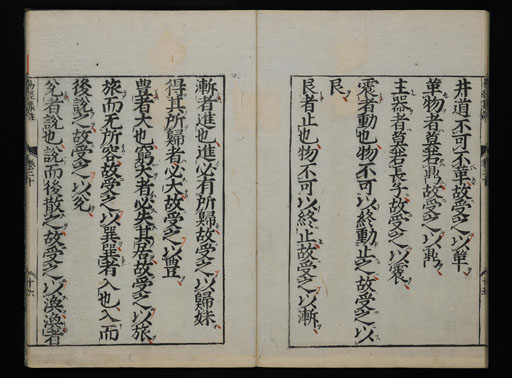 井道不可不革故受之以革
革物者莫若鼎故受之以鼎
主器者莫若長子故受之以震
震者動也物不可以終動止之故受之以
艮
艮者止也物不可以終止故受之以漸
漸者進也進必有所歸故受之以歸妹
得其所歸者必大故受之以豊
豊者大也窮大者必失其居故受之以旅
旅而无所容故受之以巽巽者入也入而
後說之故受之以兊
兊者說也說而後散之故受之以渙渙者